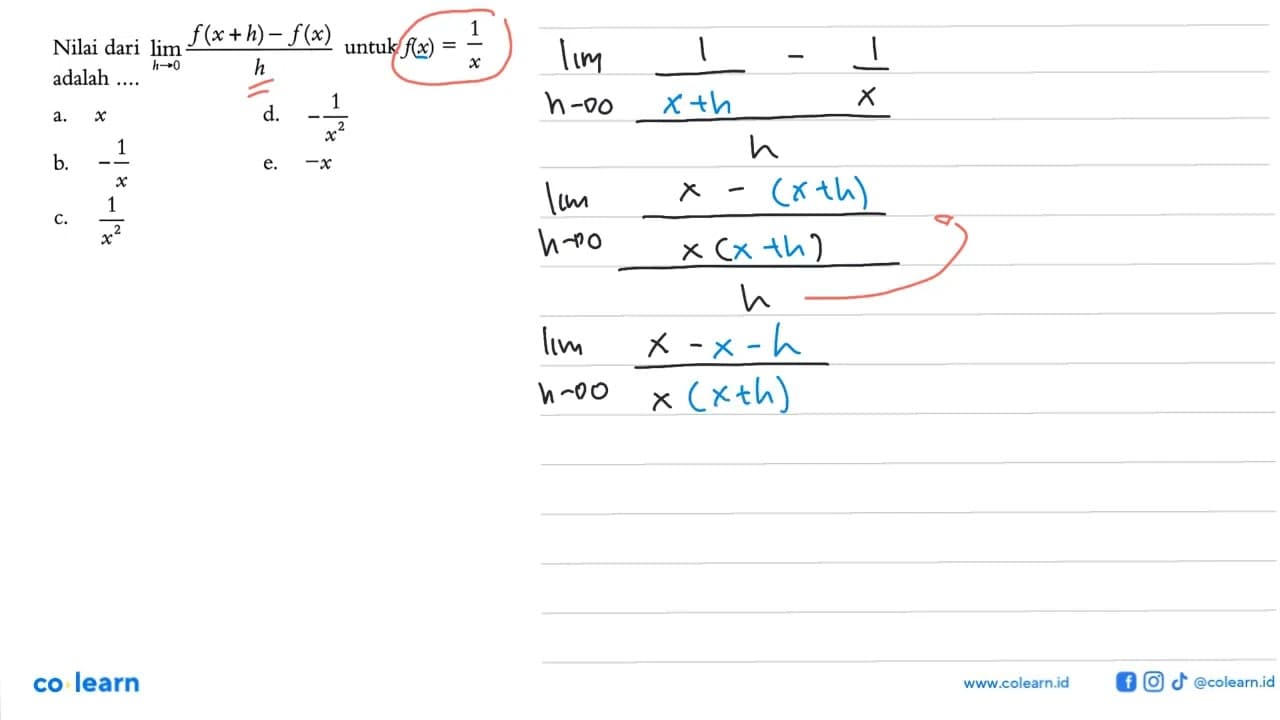 Nilai dari lim h→0 f(x+h) − f(x) / h untuk f(x) = 1/x
adalah ....
a. x
b. −1/x
c. 1/x²
d. −1/x²
e. −x
lim h→0 1/(x+h) − 1/x / h
lim h→0 x − (x+h) / x(x+h) / h
lim h→0 x − x − h / x(x+h)
co learn
www.colearn.id
@colearn.id